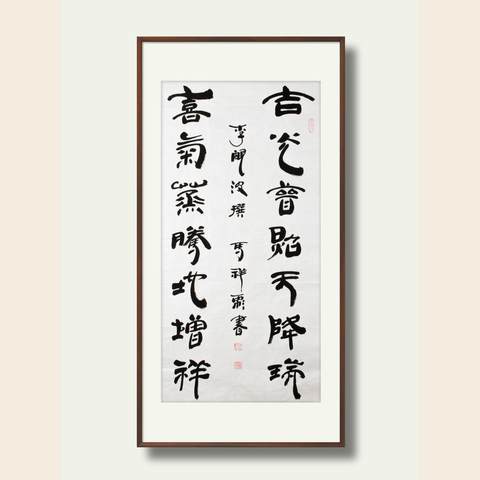 吉光普照天降瑞
李 波撰 馬祥 書
喜氣蒸騰地增祥